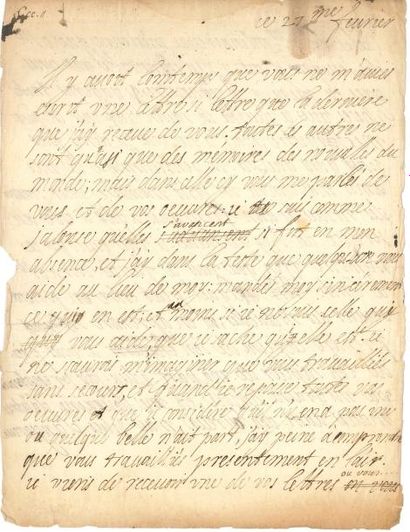 ce 27me fevrier
Il y avoit lontems que vous ne m'avies
ecrit une aussi lettre que la derniere
que j'ay receue de vous. toutes les autres ne
sont quasi que des mémoires des nouvelles du
monde; mais dans celle cy vous me parles de
vous, et de vos oeuvres. je suis comme
jalouse quelles s'avencent si fort en mon
absence, et j'ay dans la teste que quelqu'un vous
aide au lieu de moy. mandes moy sincerement
ce qui en est; et au moins si je ne suis celle qui
vous aide, que je sache qu'elle est. je
ne saurois m'imaginer que vous travailliés
sans secours, et quand je repasse toutes vos
oeuvres et que je considere qu'il n'y en a pas une
ou quelque belle n'ait part, j'ay peine à comprendre
que vous travailliés presentement en l'air.
je viens de recevoir une de vos lettres ou vous